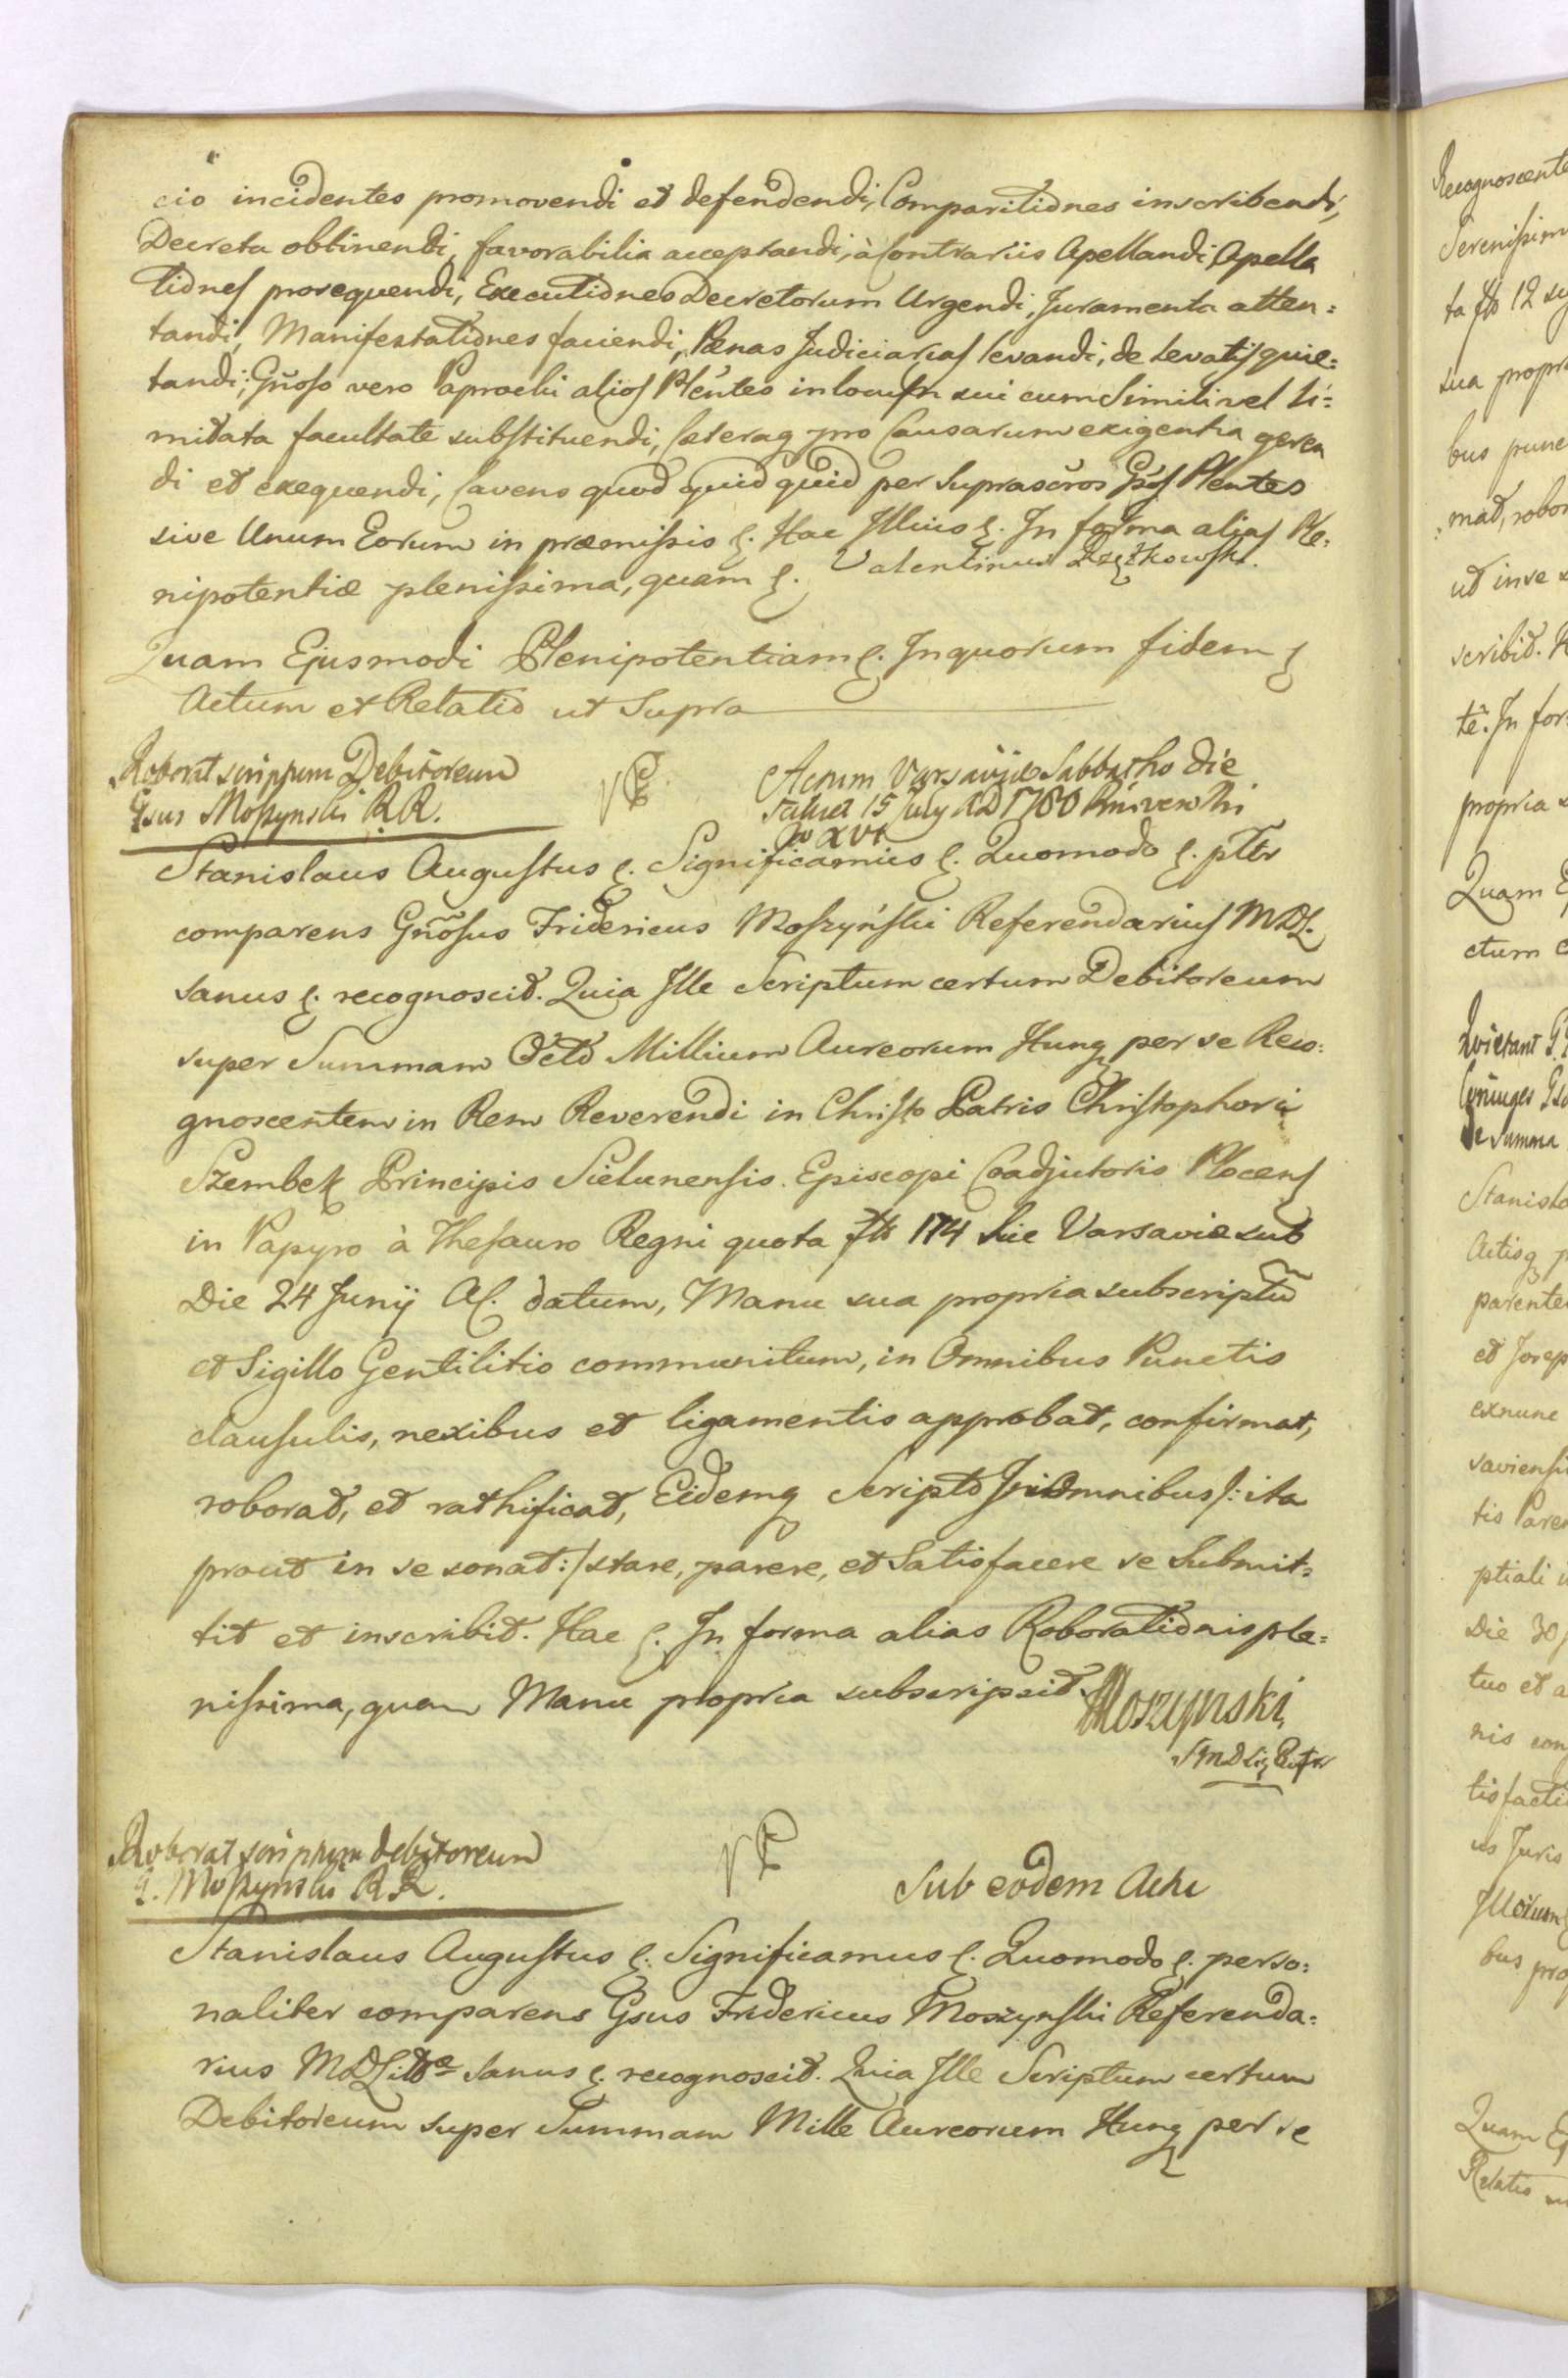 cio incidentes promovendi et defendendi, Comparitiones inscribendi,
Decreta obtinendi, favorabilia acceptandi, à Contrariis Apellandi, Apella
tiones prosequendi, Executiones Decretorum Urgendi, Juramenta atten=
tandi, Manifestationes faciendi, Pænas Judiciarias levandi, de levatis quie=
tandi; Gnoso vero Paprocki alios Plentes in locum sui cum simili vel li=
mitata facultate substituendi, Cæteraq pro Causarum exigentia geren
di et exequendi, Cavens quod quid quid per suprascros Gsos Plentes
sive Unum Eorum in præmissis &. Hac Illius &. In forma alias Ple=
nipotentiæ plenissima, quam &. Valentinus
Quam Ejusmodi Plenipotentiam &. In quorum fidem &
Actum et Relatio ut Supra
Roborat scriptum Debitoreum
Gsus Moszynski R.R.
Actum Varsaviæ Sabbatho die
15 July AD 1780
Stanislaus Augustus &. Significamus &. Quomodo &. pltr
comparens Gnosus Fridericus Moszyński Referendarius MDL.
sanus &. recognoscit. Quia Ille Scriptum certum Debitoreum
super Summam Octo Millium Aureorum Hung per se Reco=
gnoscentem in Rem Reverendi in Christo Patris Christophori
Szembek Principis Sielunensis. Episcopi Coadjutoris Plocens
in Papyro à Thesauro Regni quota fl 174 hic Varsaviæ sub
Die 24 Junij A&. datum, Manu sua propria subscriptũ
et Sigillo Gentilitio communitum, in Omnibus Punctis
clausulis, nexibus et ligamentis approbat, confirmat,
roborat, et rathificat, Eidemq Scripto In Omnibus /: ita
prout in se sonat :/ stare, parere, et Satisfacere se Submit=
tit et inscribit. Hac &. In forma alias Roborationis ple=
nissima, quam Manu propria subscripsit. Moszynski
Roborat scriptum debitoreum
G. Moszynski R.R.
Sub eodem Actu
Stanislaus Augustus &. Significamus &. Quomodo &. perso=
naliter comparens Gsus Fridericus Moszynski Referenda=
rius MDLittæ sanus &. recognoscit. Quia Ille Scriptum certum
Debitoreum super Summam Mille Aureorum Hung per se